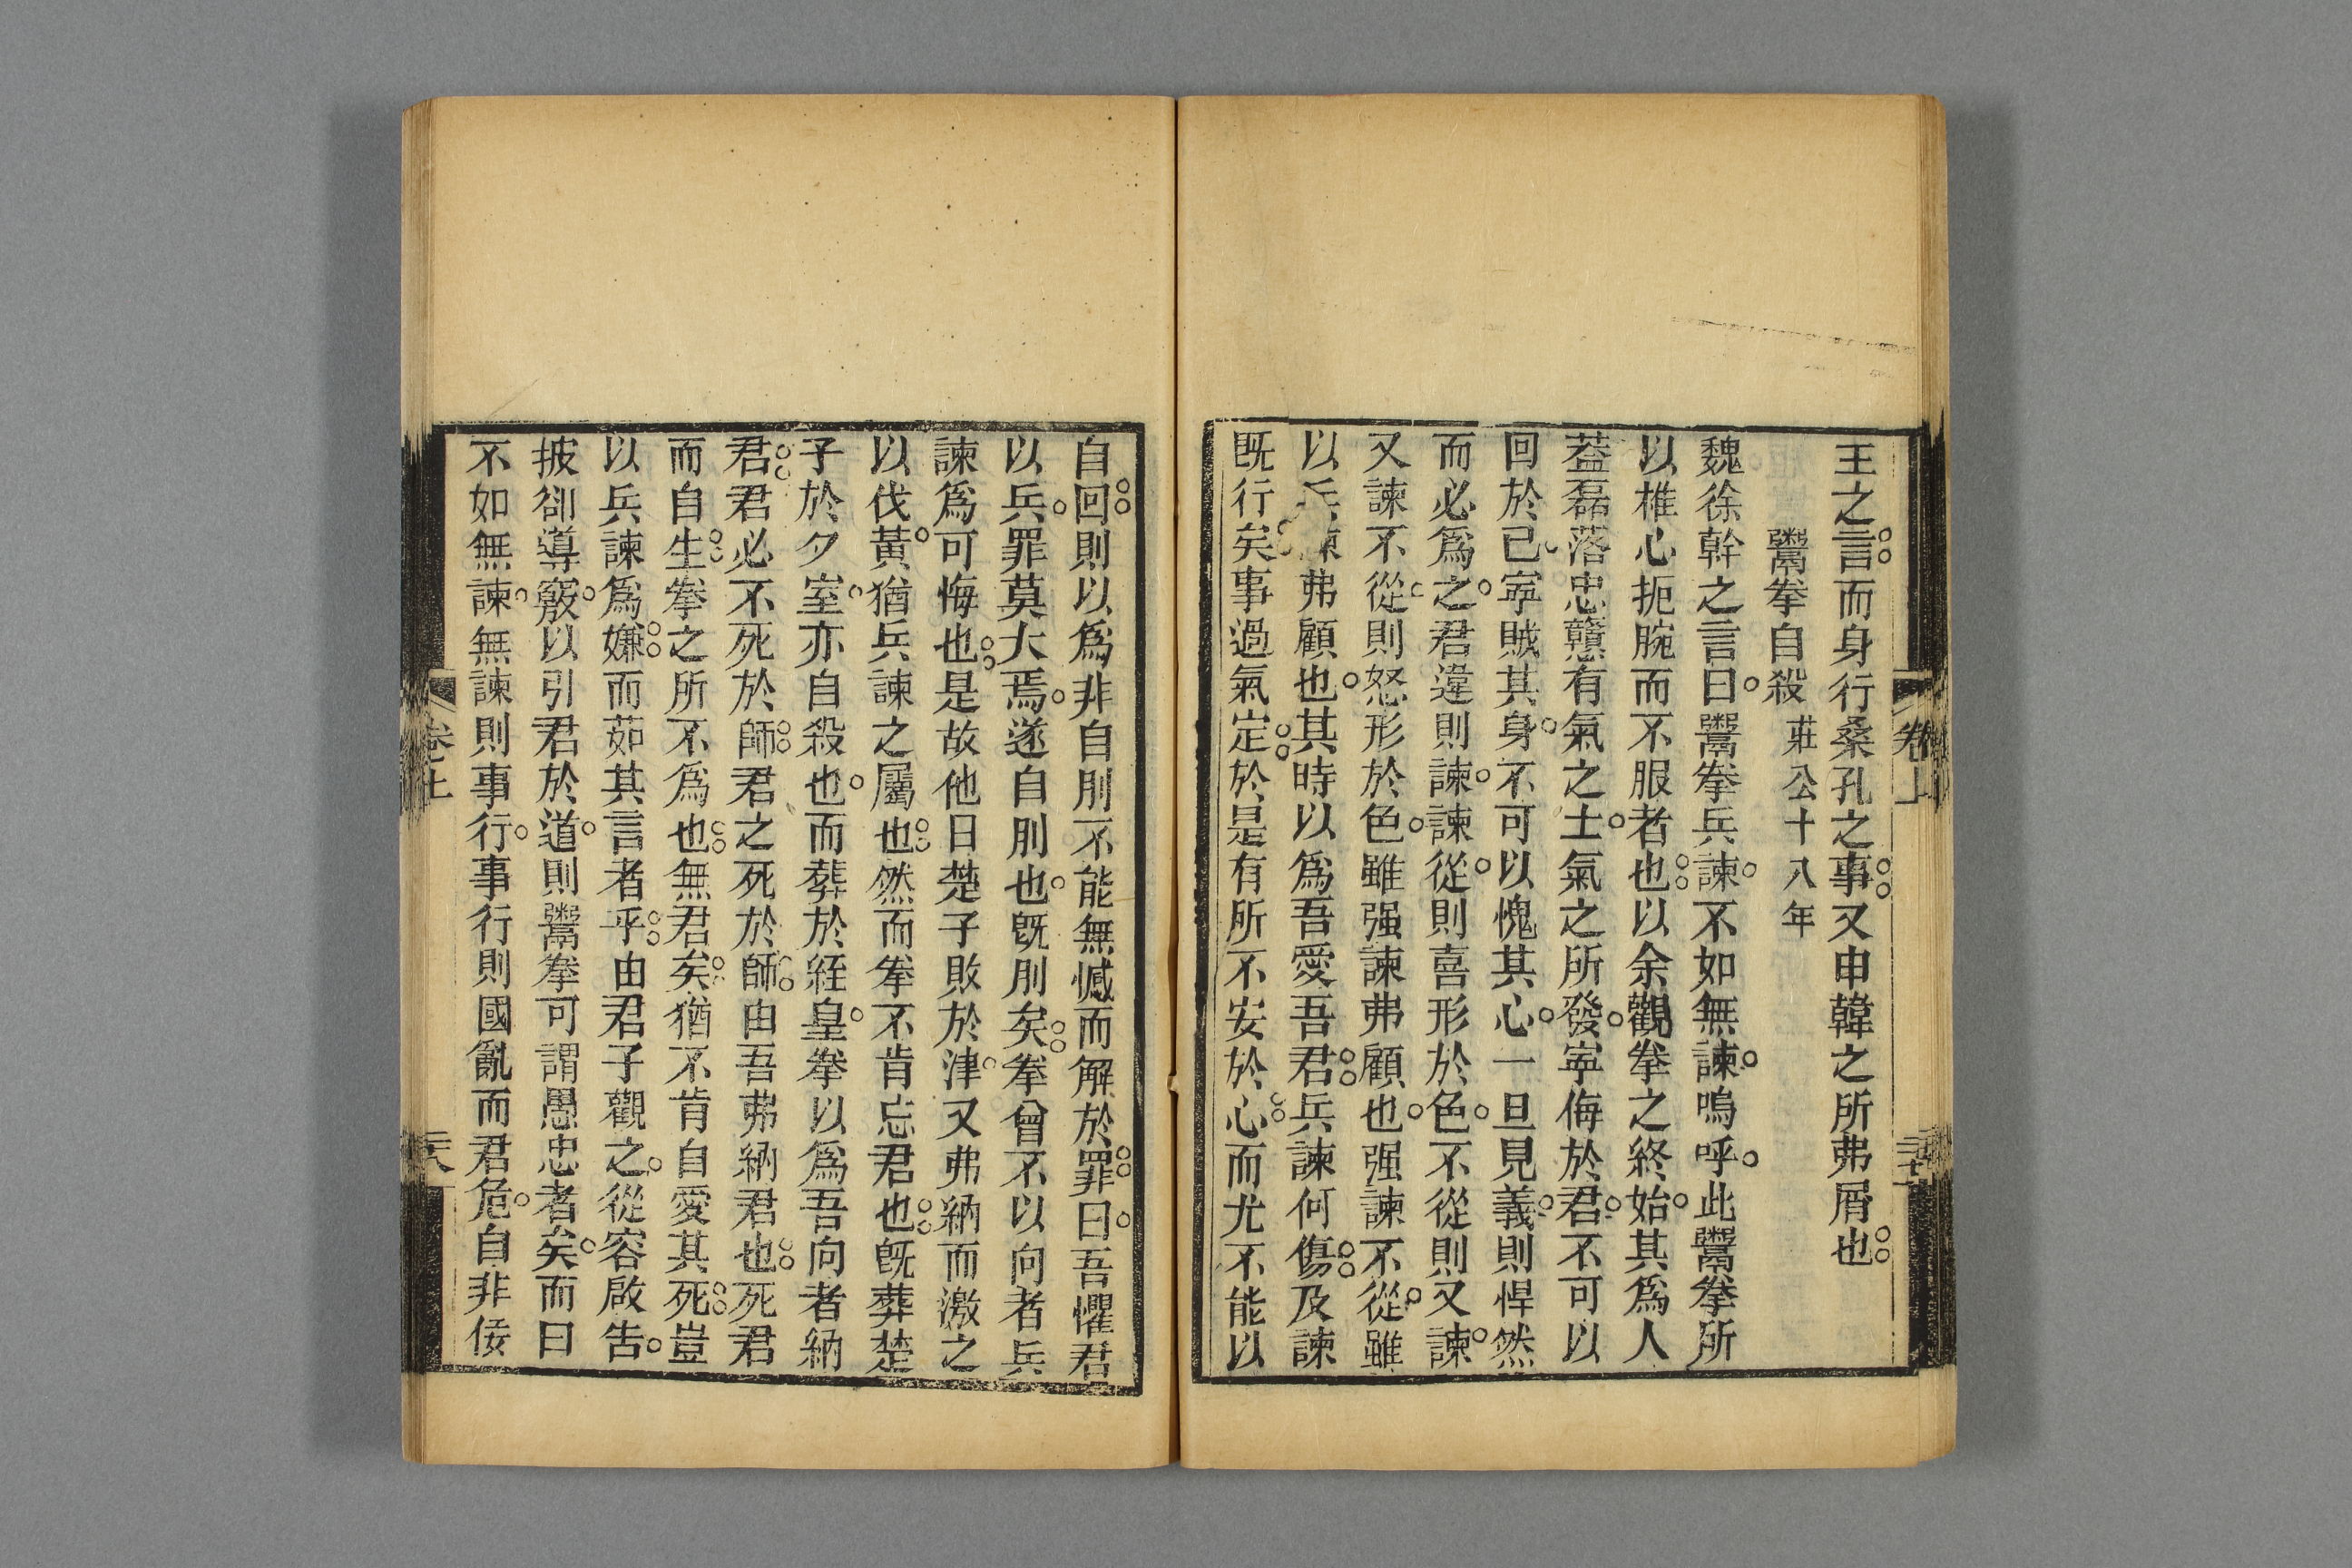 王之言而身行桑孔之事又申韓之所弗屑也
鬻拳自殺 莊公十八年
魏徐幹之言曰鬻拳兵諫不如無諫嗚呼此鬻拳所
以椎心扼腕而不服者也以余觀拳之終始其爲人
葢磊落忠戇有氣之士氣之所發寧侮於君不可以
回於已寧賊其身不可以愧其心一旦見義則悍然
而必爲之君違則諫諫從則喜形於色不從則又諫
又諫不從則怒形於色雖强諫弗顧也强諫不從雖
以兵諫弗顧也其時以爲吾愛吾君兵諫何傷及諫
既行矣事過氣定於是有所不安於心而尤不能以
自回則以爲非自刖不能無憾而解於罪曰吾懼君
以兵罪莫大焉遂自刖也既刖矣拳曾不以向者兵
諫爲可悔也是故他日楚子敗於津又弗納而激之
以伐黃猶兵諫之屬也然而拳不肯忘君也既葬楚
子於夕室亦自殺也而葬於絰皇拳以爲吾向者納
君君必不死於師君之死於師由吾弗納君也死君
而自生拳之所不爲也無君矣猶不肯自愛其死豈
以兵諫爲嫌而茹其言者乎由君子觀之從容啟告
披卻導窾以引君於道則鬻拳可謂愚忠者矣而曰
不如無諫無諫則事行事行則國亂而君危自非佞
卷上
卷上
二十八